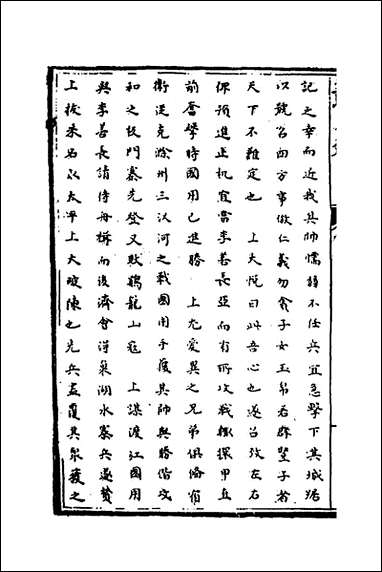 記之幸而近我其帥懦弱不任兵宜急擊下其城踞
以號召四方事倣仁義勿貪子女玉帛若群豎子者
天下不難定也　上大悅曰此吾心也遂召致左右
俾預進止机宜當李善長亞而有所攻戰輒擐甲丘
前奮擊時國用已進勝　上尤愛異之兄弟俱俻宿
衛從克滁州三汊河之戰國用手馘其帥與勝偕攻
和之板門寨先登又敗鷄龍山寇　上謀渡江國用
與李善長請待舟楫而後濟會得巢湖水寨兵遂贊
上拔采石取太平上大破陳也先兵盡覆其眾獲之